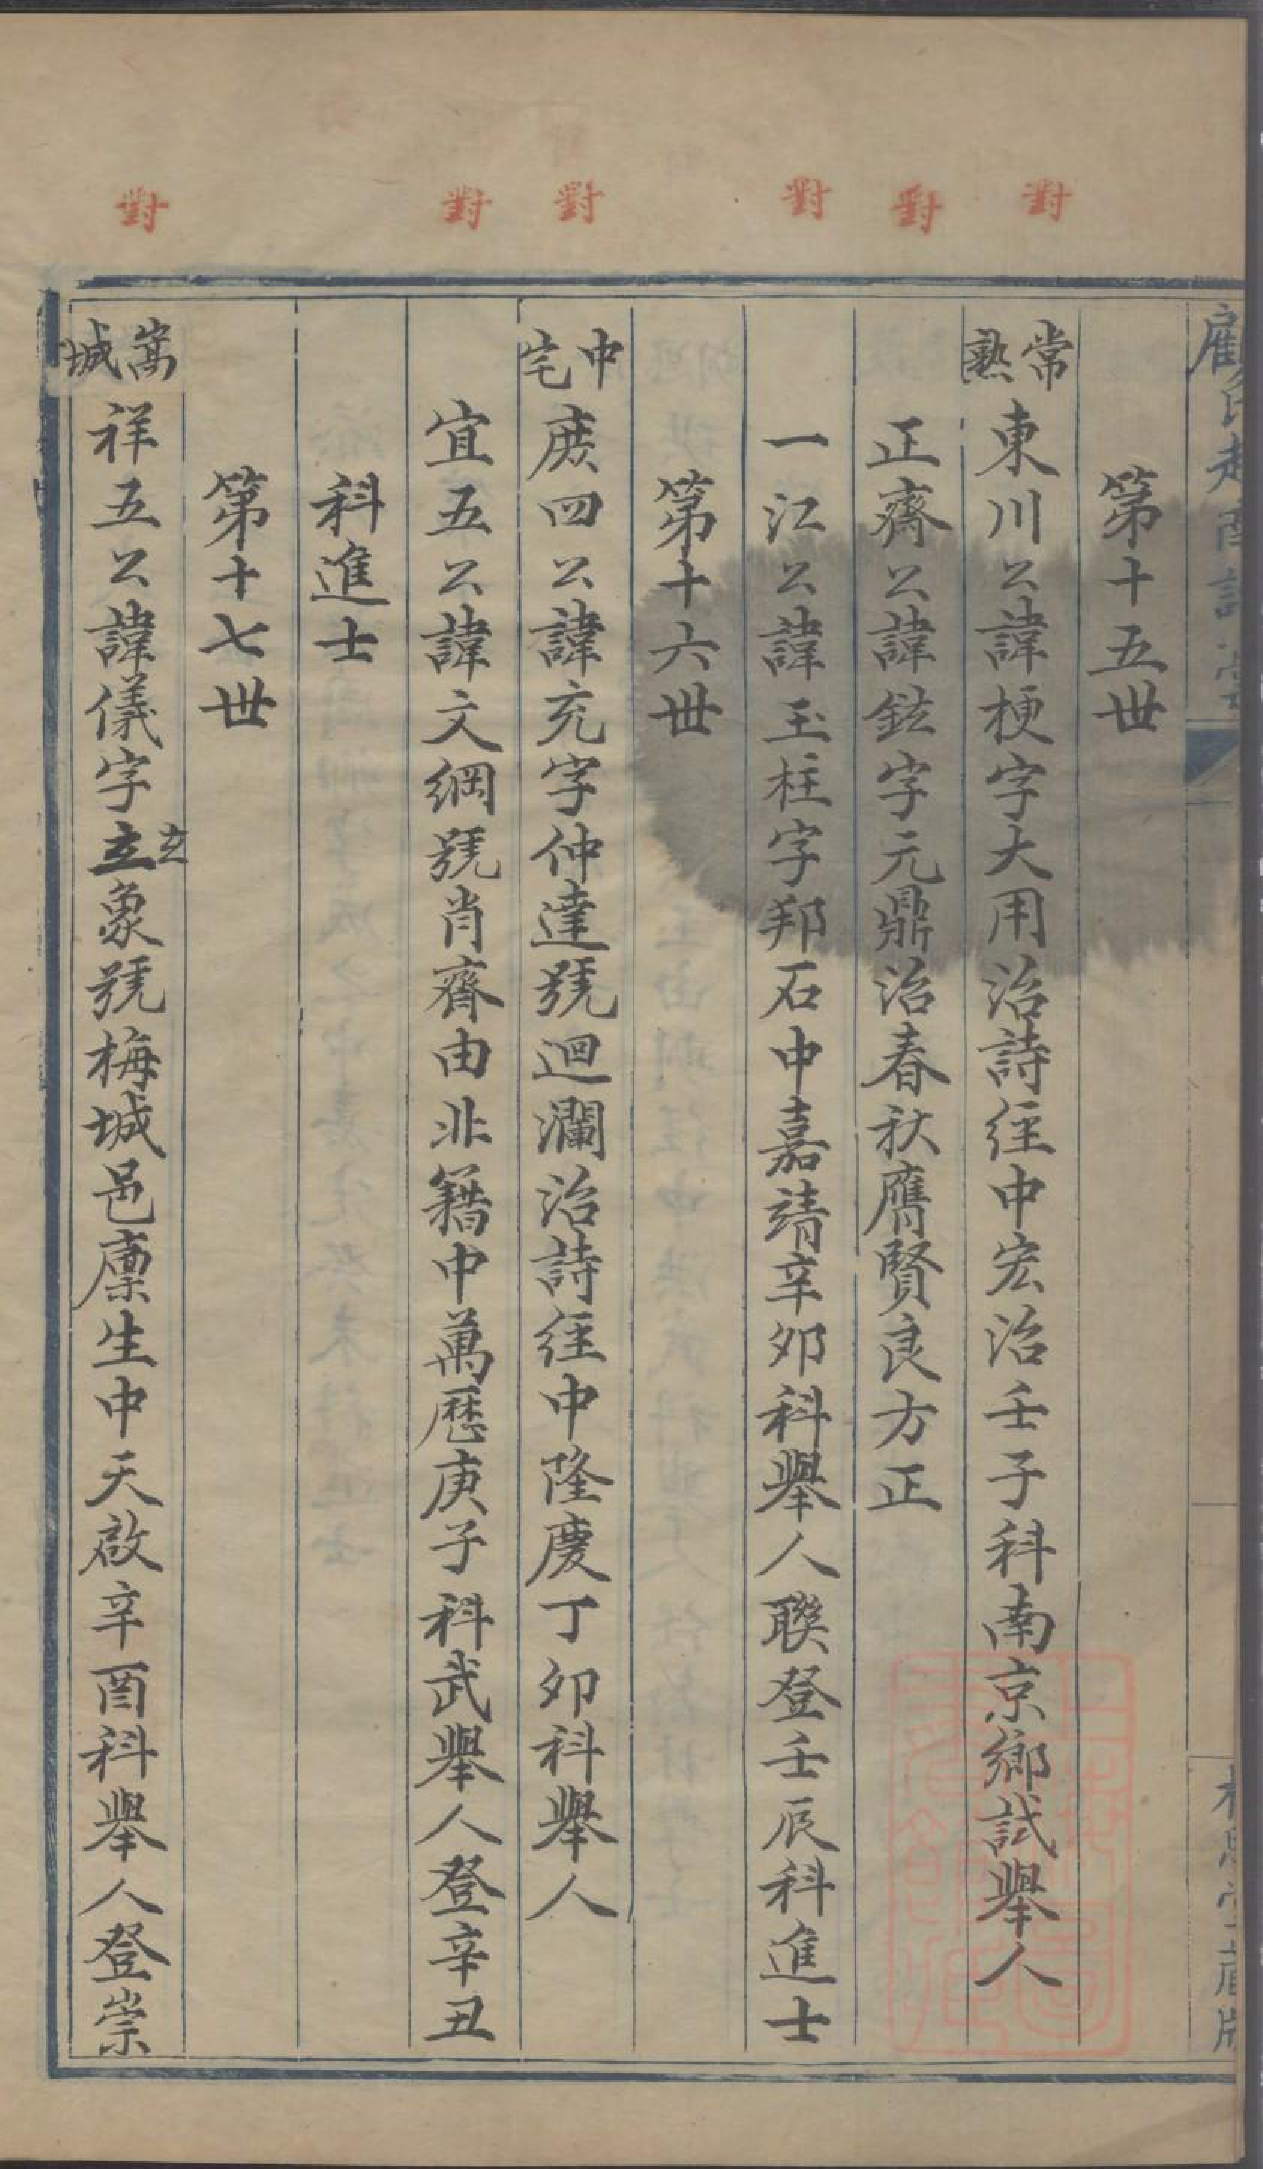 第十五世
常熟東川公諱梗字大用治詩經中宏治壬子科南京鄉試舉人
正齋公諱鉉字元鼎治春秋膺賢良方正
一江公諱玉柱字邦石中嘉靖辛卯科舉人聯登壬辰科進士
第十六世
中宅庶四公諱充字仲達號迴瀾治詩經中隆慶丁卯科舉人
宜五公諱文綱號肖齋由北籍中萬歷庚子科武舉人登辛丑
科進士
第十七世
嵩城祥五公諱儀字立立象號梅城邑廩生中天啟辛酉科舉人登崇
對
對
對
對
對
對